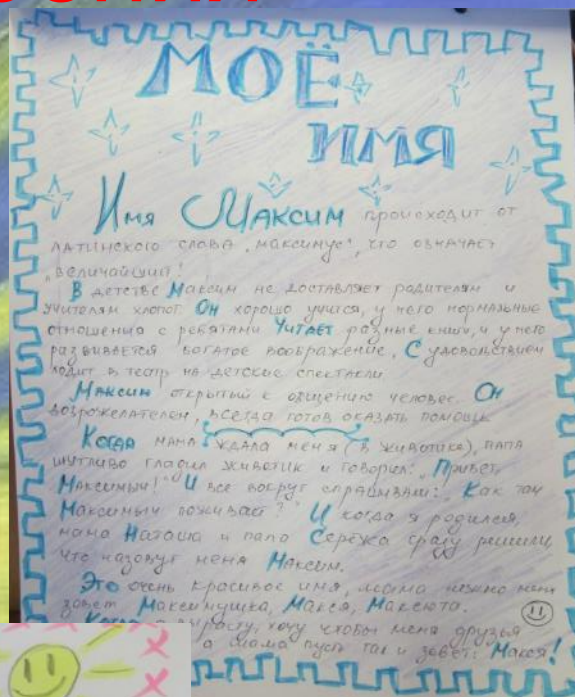 МОЁ
ИМЯ
Имя МАКСИМ происходит от
латинского слова „максимус", что означает
„величайший".
В детстве Максим не доставляет родителям и
учителям хлопот. Он хорошо учится, у него нормальные
отношения с ребятами. Читает разные книги, и у него
развивается богатое воображение. С удовольствием
ходит в театр на детские спектакли.
Максим открытый к общению человек. Он
возрожелателен, всегда готов оказать помощь.
Когда мама ждала меня (в животике), папа
шутливо гладил животик и говорил: „Привет,
Максимыч!" И все вокруг спрашивали: „Как там
Максимыч поживает?" И когда я родился,
мама Наташа и папа Сережа сразу решили,
что назовут меня Максим.
Это очень красивое имя, мама нежно меня
зовет Максимушка, Макся, Максюта.
Когда вырасту, хочу чтобы меня друзья
а мама пусть так и зовет: Макся!